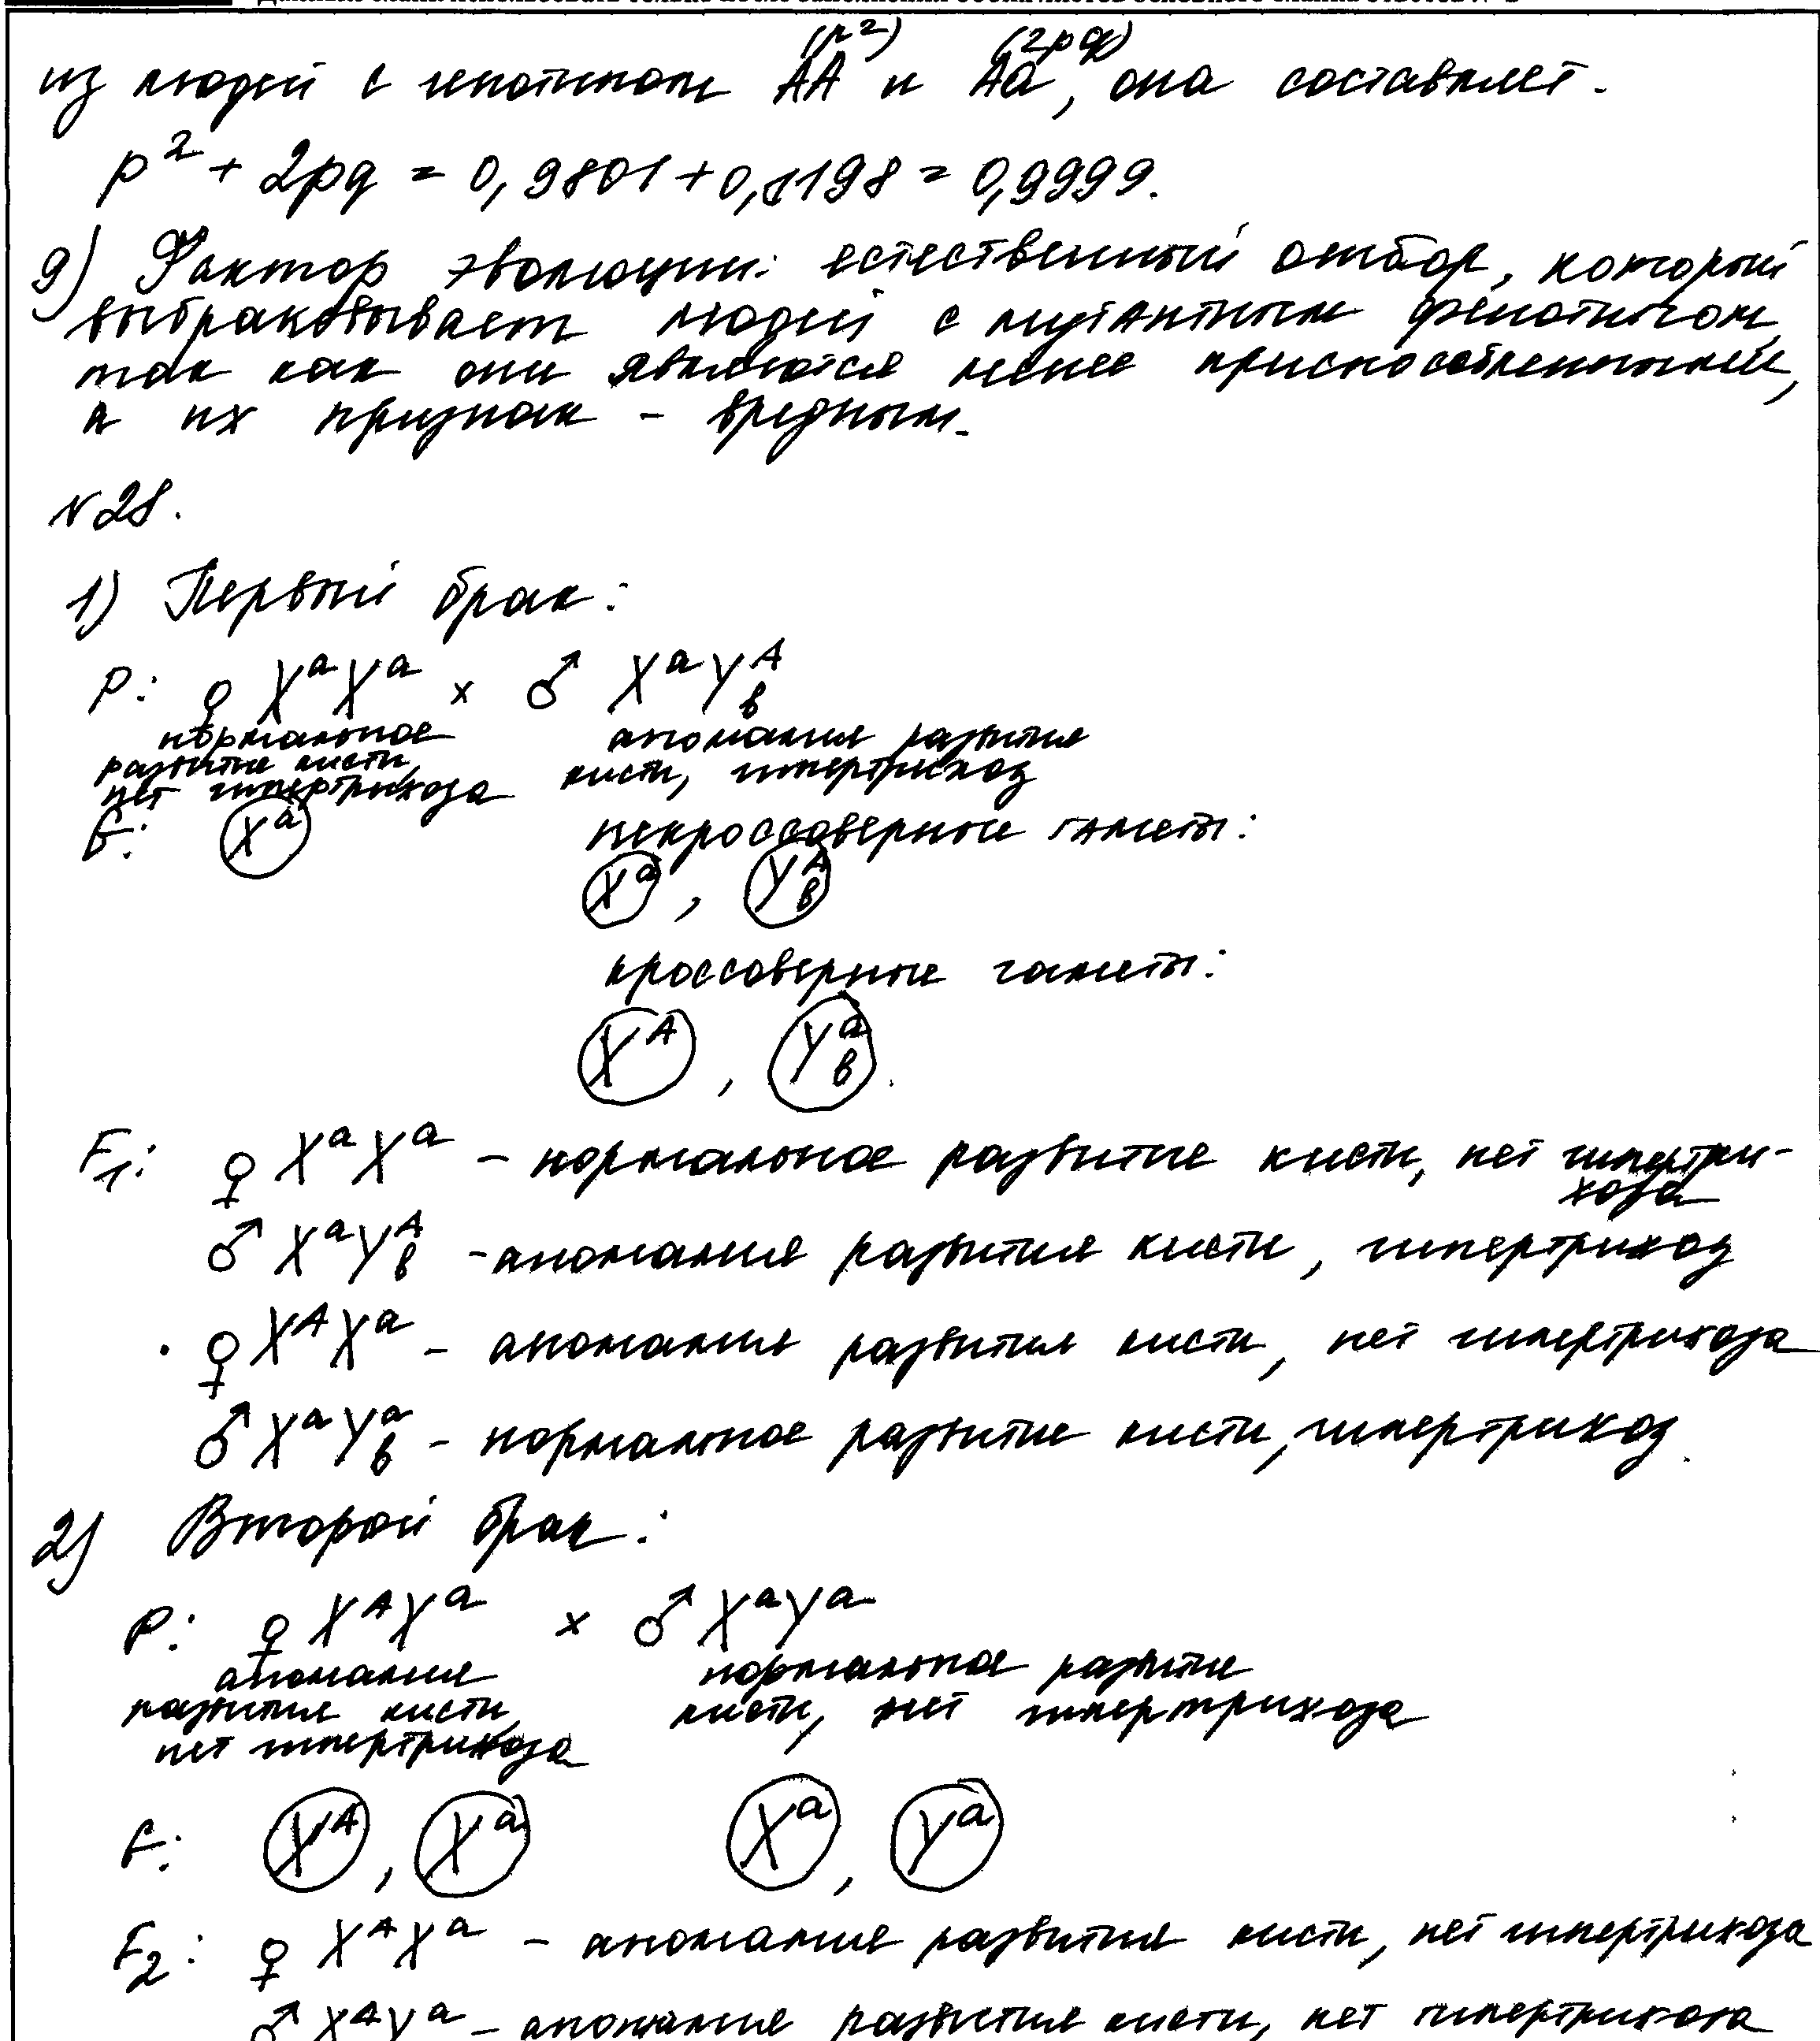 из людей с генотипом AA (p²) и Aa (2pq), она составляет.
p² + 2pq = 0,9801 + 0,0198 = 0,9999.
9) Фактор эволюции: естественный отбор, который
выбраковывает людей с мутантным фенотипом,
так как они являются менее приспособленными,
а их признак - вредным.
№28.
1) Первый брак:
P: ♀ XᵃXᵃ × ♂ XᵃYᴬb
нормальное аномалия развития
развитие кисти, кисти, гипертрихоз
нет гипертрихоза
G: Xᵃ некроссоверные гаметы:
Xᵃ, Yᴬb
кроссоверные гаметы:
Xᴬ, Yᵃb.
F₁: ♀ XᵃXᵃ - нормальное развитие кисти, нет гипертри-
хоза
♂ XᵃYᴬb - аномалия развития кисти, гипертрихоз
♀ XᴬXᵃ - аномалия развития кисти, нет гипертрихоза
♂ XᵃYᵃb - нормальное развитие кисти, гипертрихоз.
2) Второй брак:
P: ♀ XᴬXᵃ × ♂ XᵃYᵃ
аномалия нормальное развитие
развития кисти, кисти, нет гипертрихоза
нет гипертрихоза
G: Xᴬ, Xᵃ Xᵃ, Yᵃ
F₂: ♀ XᴬXᵃ - аномалия развития кисти, нет гипертрихоза
♂ XᴬYᵃ - аномалия развития кисти, нет гипертрихоза